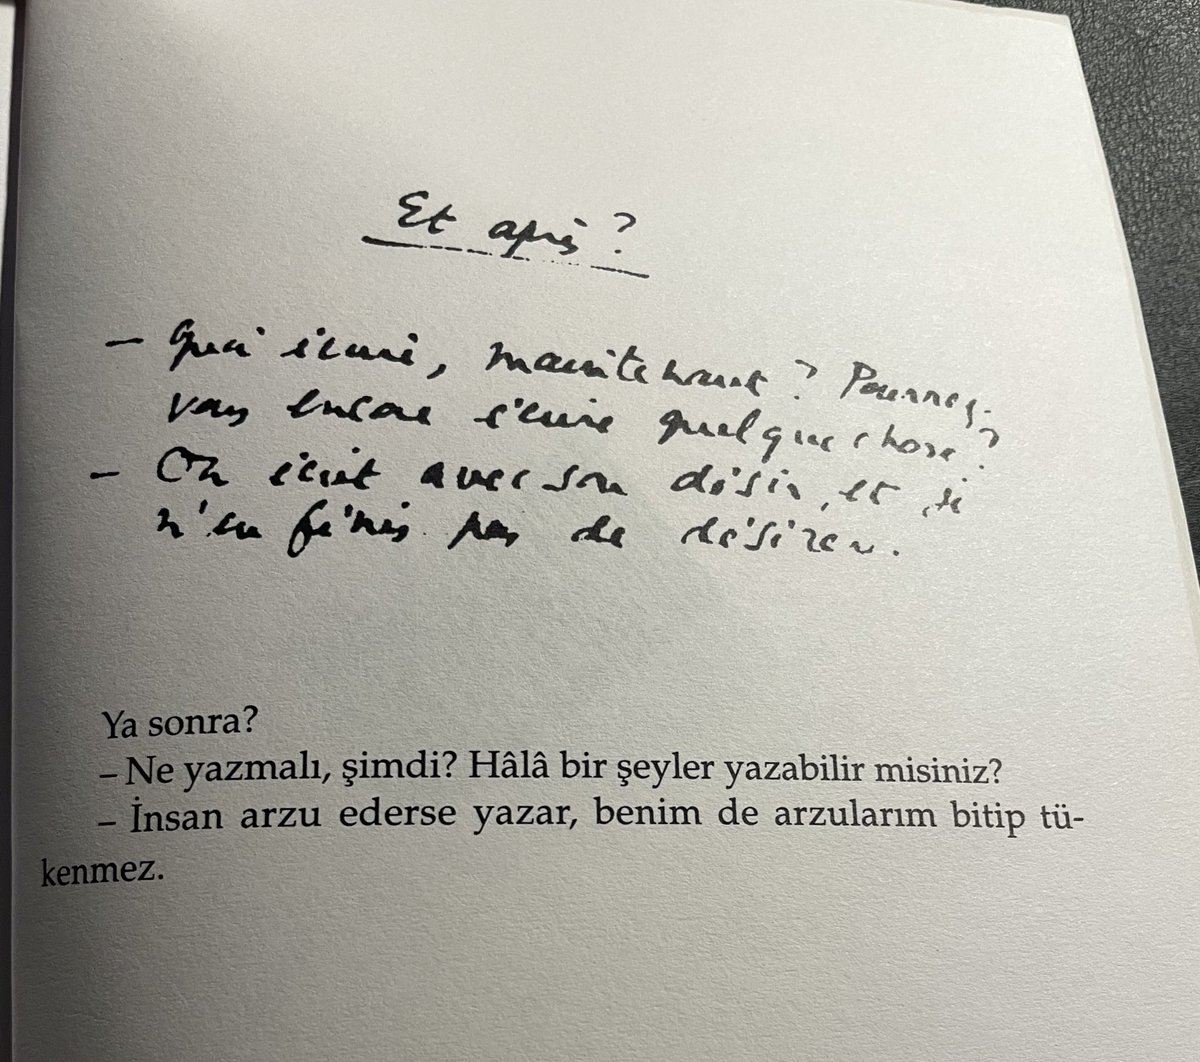 Et après ?
– Quoi écrire, maintenant ? Pourrez-
vous encore écrire quelque chose ?
– On écrit avec son désir, et je
n'en finis pas de désirer.
Ya sonra?
– Ne yazmalı, şimdi? Hâlâ bir şeyler yazabilir misiniz?
– İnsan arzu ederse yazar, benim de arzularım bitip tü-
kenmez.